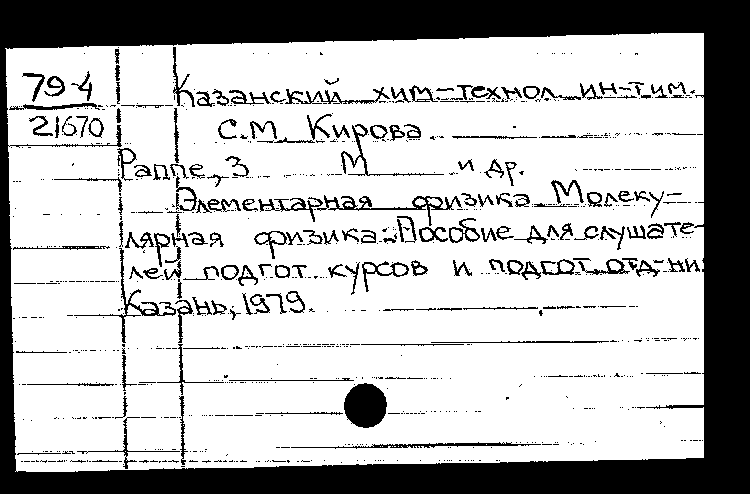 79-4
21670
Казанский хим-технол. ин-т им.
С.М. Кирова.
Раппе, З М и др.
Элементарная физика Молеку-
лярная физика.: Пособие для слушате-
лей подгот. курсов и подгот. отд-ний
Казань, 1979.